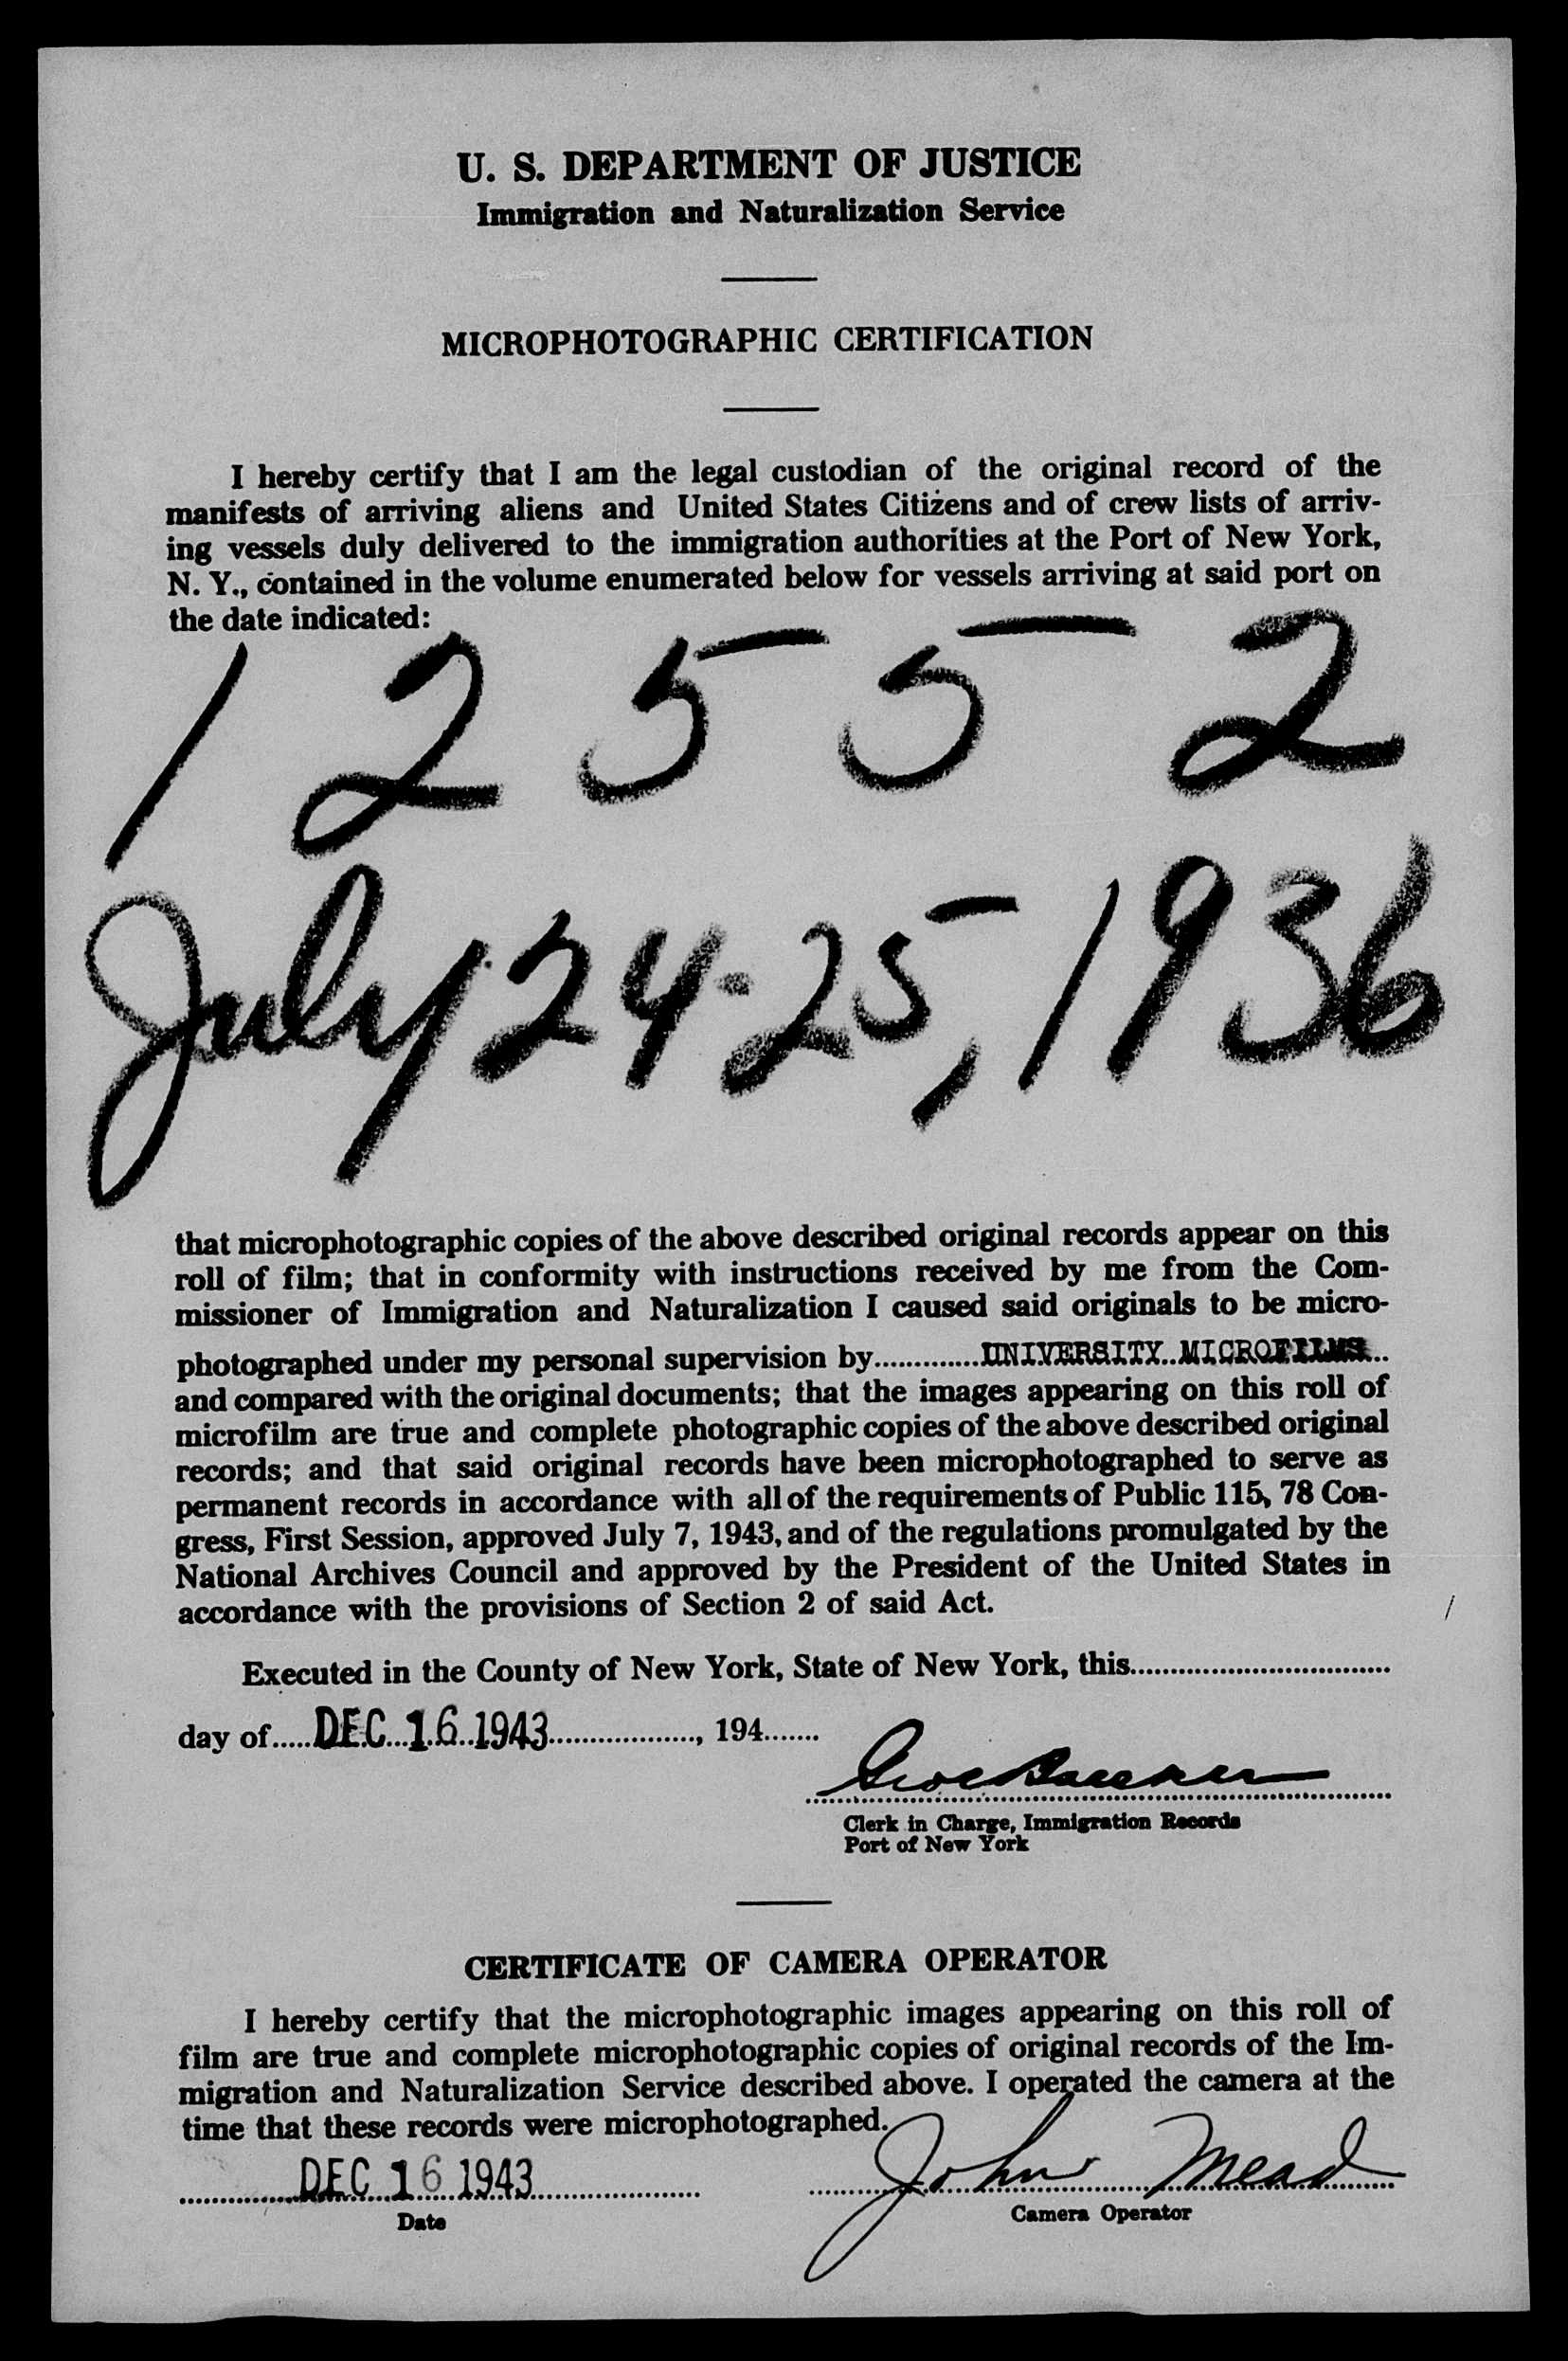 U. S. DEPARTMENT OF JUSTICE
Immigration and Naturalization Service
MICROPHOTOGRAPHIC CERTIFICATION
I hereby certify that I am the legal custodian of the original record of the
manifests of arriving aliens and United States Citizens and of crew lists of arriv-
ing vessels duly delivered to the immigration authorities at the Port of New York,
N. Y., contained in the volume enumerated below for vessels arriving at said port on
the date indicated:
12552
July 24-25, 1936
that microphotographic copies of the above described original records appear on this
roll of film; that in conformity with instructions received by me from the Com-
missioner of Immigration and Naturalization I caused said originals to be micro-
photographed under my personal supervision by UNIVERSITY MICROFILMS
and compared with the original documents; that the images appearing on this roll of
microfilm are true and complete photographic copies of the above described original
records; and that said original records have been microphotographed to serve as
permanent records in accordance with all of the requirements of Public 115, 78 Con-
gress, First Session, approved July 7, 1943, and of the regulations promulgated by the
National Archives Council and approved by the President of the United States in
accordance with the provisions of Section 2 of said Act.
Executed in the County of New York, State of New York, this
day of DEC 16 1943, 194
Clerk in Charge, Immigration Records
Port of New York
CERTIFICATE OF CAMERA OPERATOR
I hereby certify that the microphotographic images appearing on this roll of
film are true and complete microphotographic copies of original records of the Im-
migration and Naturalization Service described above. I operated the camera at the
time that these records were microphotographed.
DEC 16 1943 John Mead
Date Camera Operator